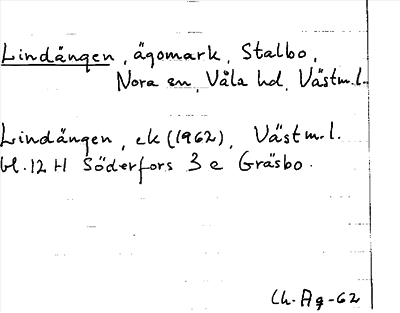 Lindängen, ägomark, Stalbo,
Nora sn, Våla hd, Västm.l.
Lindängen, ek (1962), Västm.l.
bl. 12 H Söderfors 3 e Gräsbo.
Ch. Ag -62